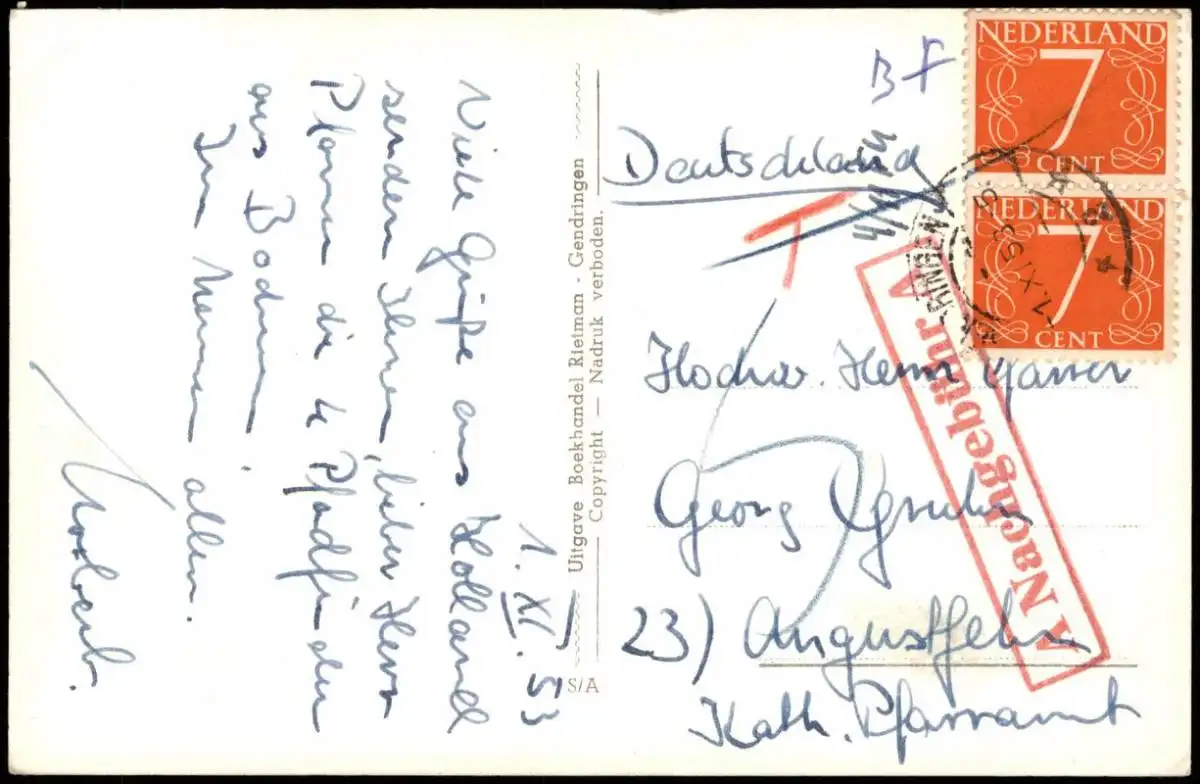 1. XI. 53
Viele Grüße aus Holland
senden Ihnen, lieber Herr
Pfarrer die 4 Pfadfinder
aus Bochum.
Im Namen aller.
Norbert.
Uitgave Boekhandel Rietman - Gendringen
Copyright — Nadruk verboden.
S/A
Deutschland
T
Hochw. Herrn Pfarrer
Georg Gruber
23) Augustfehn
Kath. Pfarramt
Nachgebühr
NEDERLAND
7
CENT
NEDERLAND
7
CENT